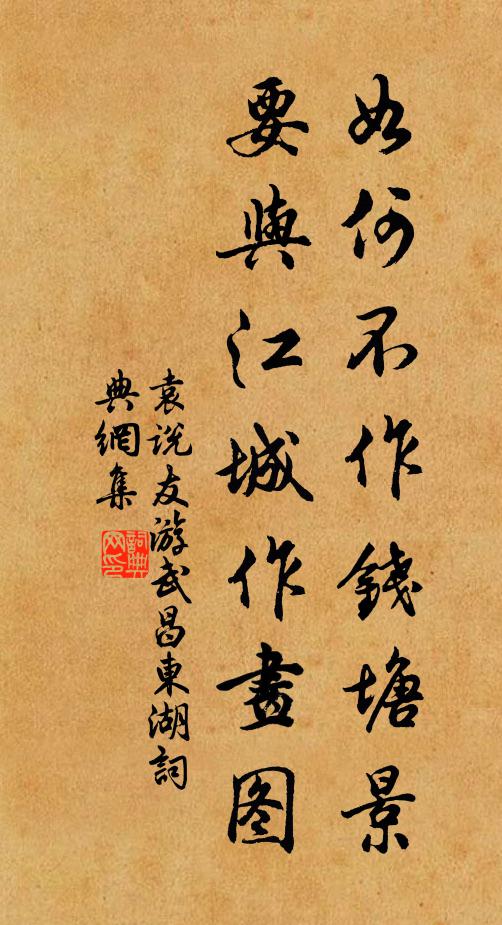 如何不作錢塘景
要與江城作畫图
袁说友游武昌東湖詞
典網集
詞典
网印